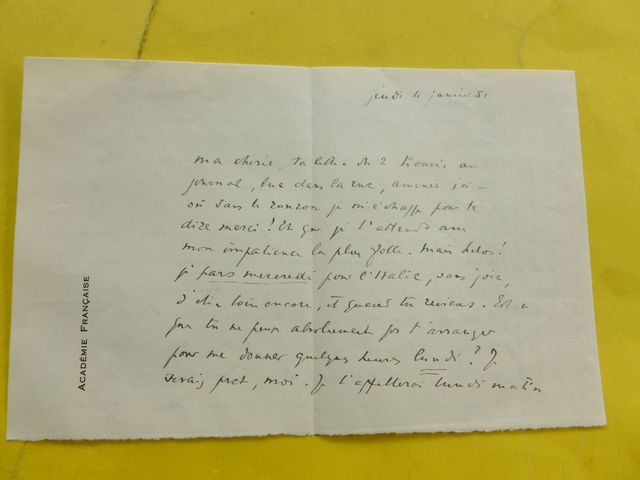 ACADÉMIE FRANÇAISE
jeudi 4 janvier 51
ma chérie, ta lettre du 2 trouvée au
journal, lue dans la rue, amenée
dans le ronron je m'échappe pour te
dire merci ! Et que je t'attends avec
mon impatience la plus folle. Mais hélas !
je pars mercredi pour l'Italie, sans joie,
d'être loin encore, et quand tu reviens. Est-ce
que tu ne peux absolument pas t'arranger
pour me donner quelques heures lundi ? Je
serais prêt, moi. Je t'appellerai lundi matin